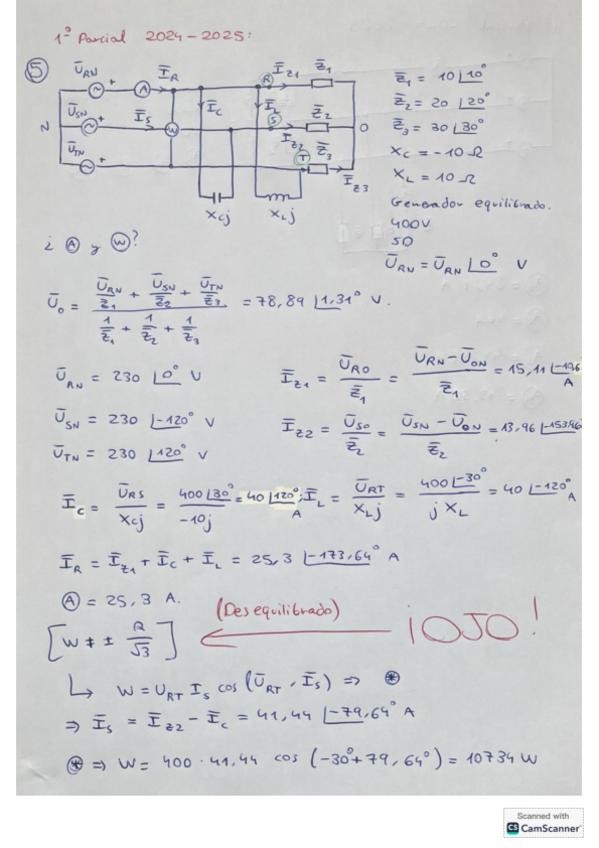 1º Parcial 2024-2025:
⑤ U̅RN + Ⓐ I̅R Ⓡ I̅Z1 Z̅1
U̅SN + I̅S Ⓦ I̅C I̅L Ⓢ I̅Z2 Z̅2
N U̅TN + Ⓣ Z̅3 O
I̅Z3
XCj XLj
Z̅1 = 10∠10°
Z̅2 = 20∠20°
Z̅3 = 30∠30°
XC = -10 Ω
XL = 10 Ω
Generador equilibrado.
400V
50
U̅RN = U̅RN∠0° V
¿ Ⓐ y Ⓦ?
U̅0 = (U̅RN/Z̅1 + U̅SN/Z̅2 + U̅TN/Z̅3) / (1/Z̅1 + 1/Z̅2 + 1/Z̅3) = 78,89∠1,31° V.
U̅RN = 230∠0° V
I̅Z1 = U̅RO/Z̅1 = (U̅RN - U̅ON)/Z̅1 = 15,11 A
U̅SN = 230∠-120° V
I̅Z2 = U̅SO/Z̅2 = (U̅SN - U̅ON)/Z̅2 = 13,96∠-153,96
U̅TN = 230∠120° V
I̅C = U̅RS/XCj = 400∠30°/-10j = 40∠120° A; I̅L = U̅RT/XLj = 400∠-30°/jXL = 40∠-120° A
I̅R = I̅Z1 + I̅C + I̅L = 25,3∠-173,64° A
Ⓐ = 25,3 A.
(Desequilibrado)
¡OJO!
[W ≠ ± Q/√3]
↳ W = URT IS cos(U̅RT, I̅S) ⇒ ⊛
⇒ I̅S = I̅Z2 - I̅C = 41,44∠-79,64° A
⊛ ⇒ W = 400 · 41,44 cos(-30°+79,64°) = 10734 W
Scanned with
CS CamScanner